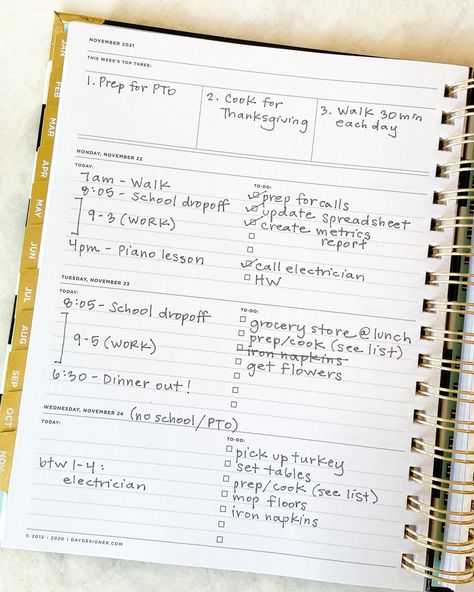 NOVEMBER 2021
THIS WEEK'S TOP THREE:
1. Prep for PTO
2. Cook for
Thanksgiving
3. Walk 30 min
each day
MONDAY, NOVEMBER 22
TODAY:
7am - Walk
8:05 - School dropoff
9-3 (WORK)
4pm - Piano lesson
TO-DO:
prep for calls
update spreadsheet
create metrics
report
call electrician
HW
TUESDAY, NOVEMBER 23
TODAY:
8:05 - School dropoff
9-5 (WORK)
6:30 - Dinner out!
TO-DO:
grocery store @ lunch
prep/cook (see list)
iron napkins
get flowers
WEDNESDAY, NOVEMBER 24 (no school/PTO)
TODAY:
btw 1-4:
electrician
TO-DO:
pick up turkey
set tables
prep/cook (see list)
mop floors
iron napkins
© 2012 - 2020 | DAYDESIGNER.COM
JAN
FEB
MAR
APR
MAY
JUN
JUL
AUG
SEP
OCT
NOV